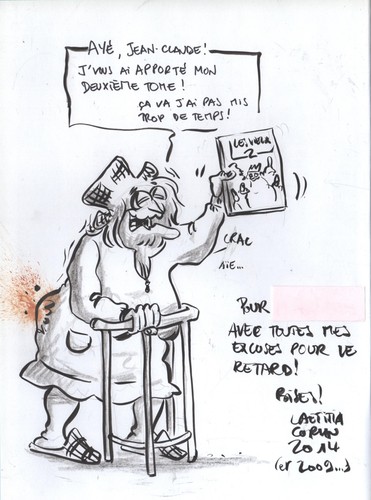 AYÉ, JEAN-CLAUDE!
J'VOUS AI APPORTÉ MON
DEUXIÈME TOME!
ÇA VA J'AI PAS MIS
TROP DE TEMPS!
2
CRAC
AÏE...
POUR
AVEC TOUTES MES
EXCUSES POUR LE
RETARD!
BISES!
LAETITIA
CORYN
2014
(ET 2009...)